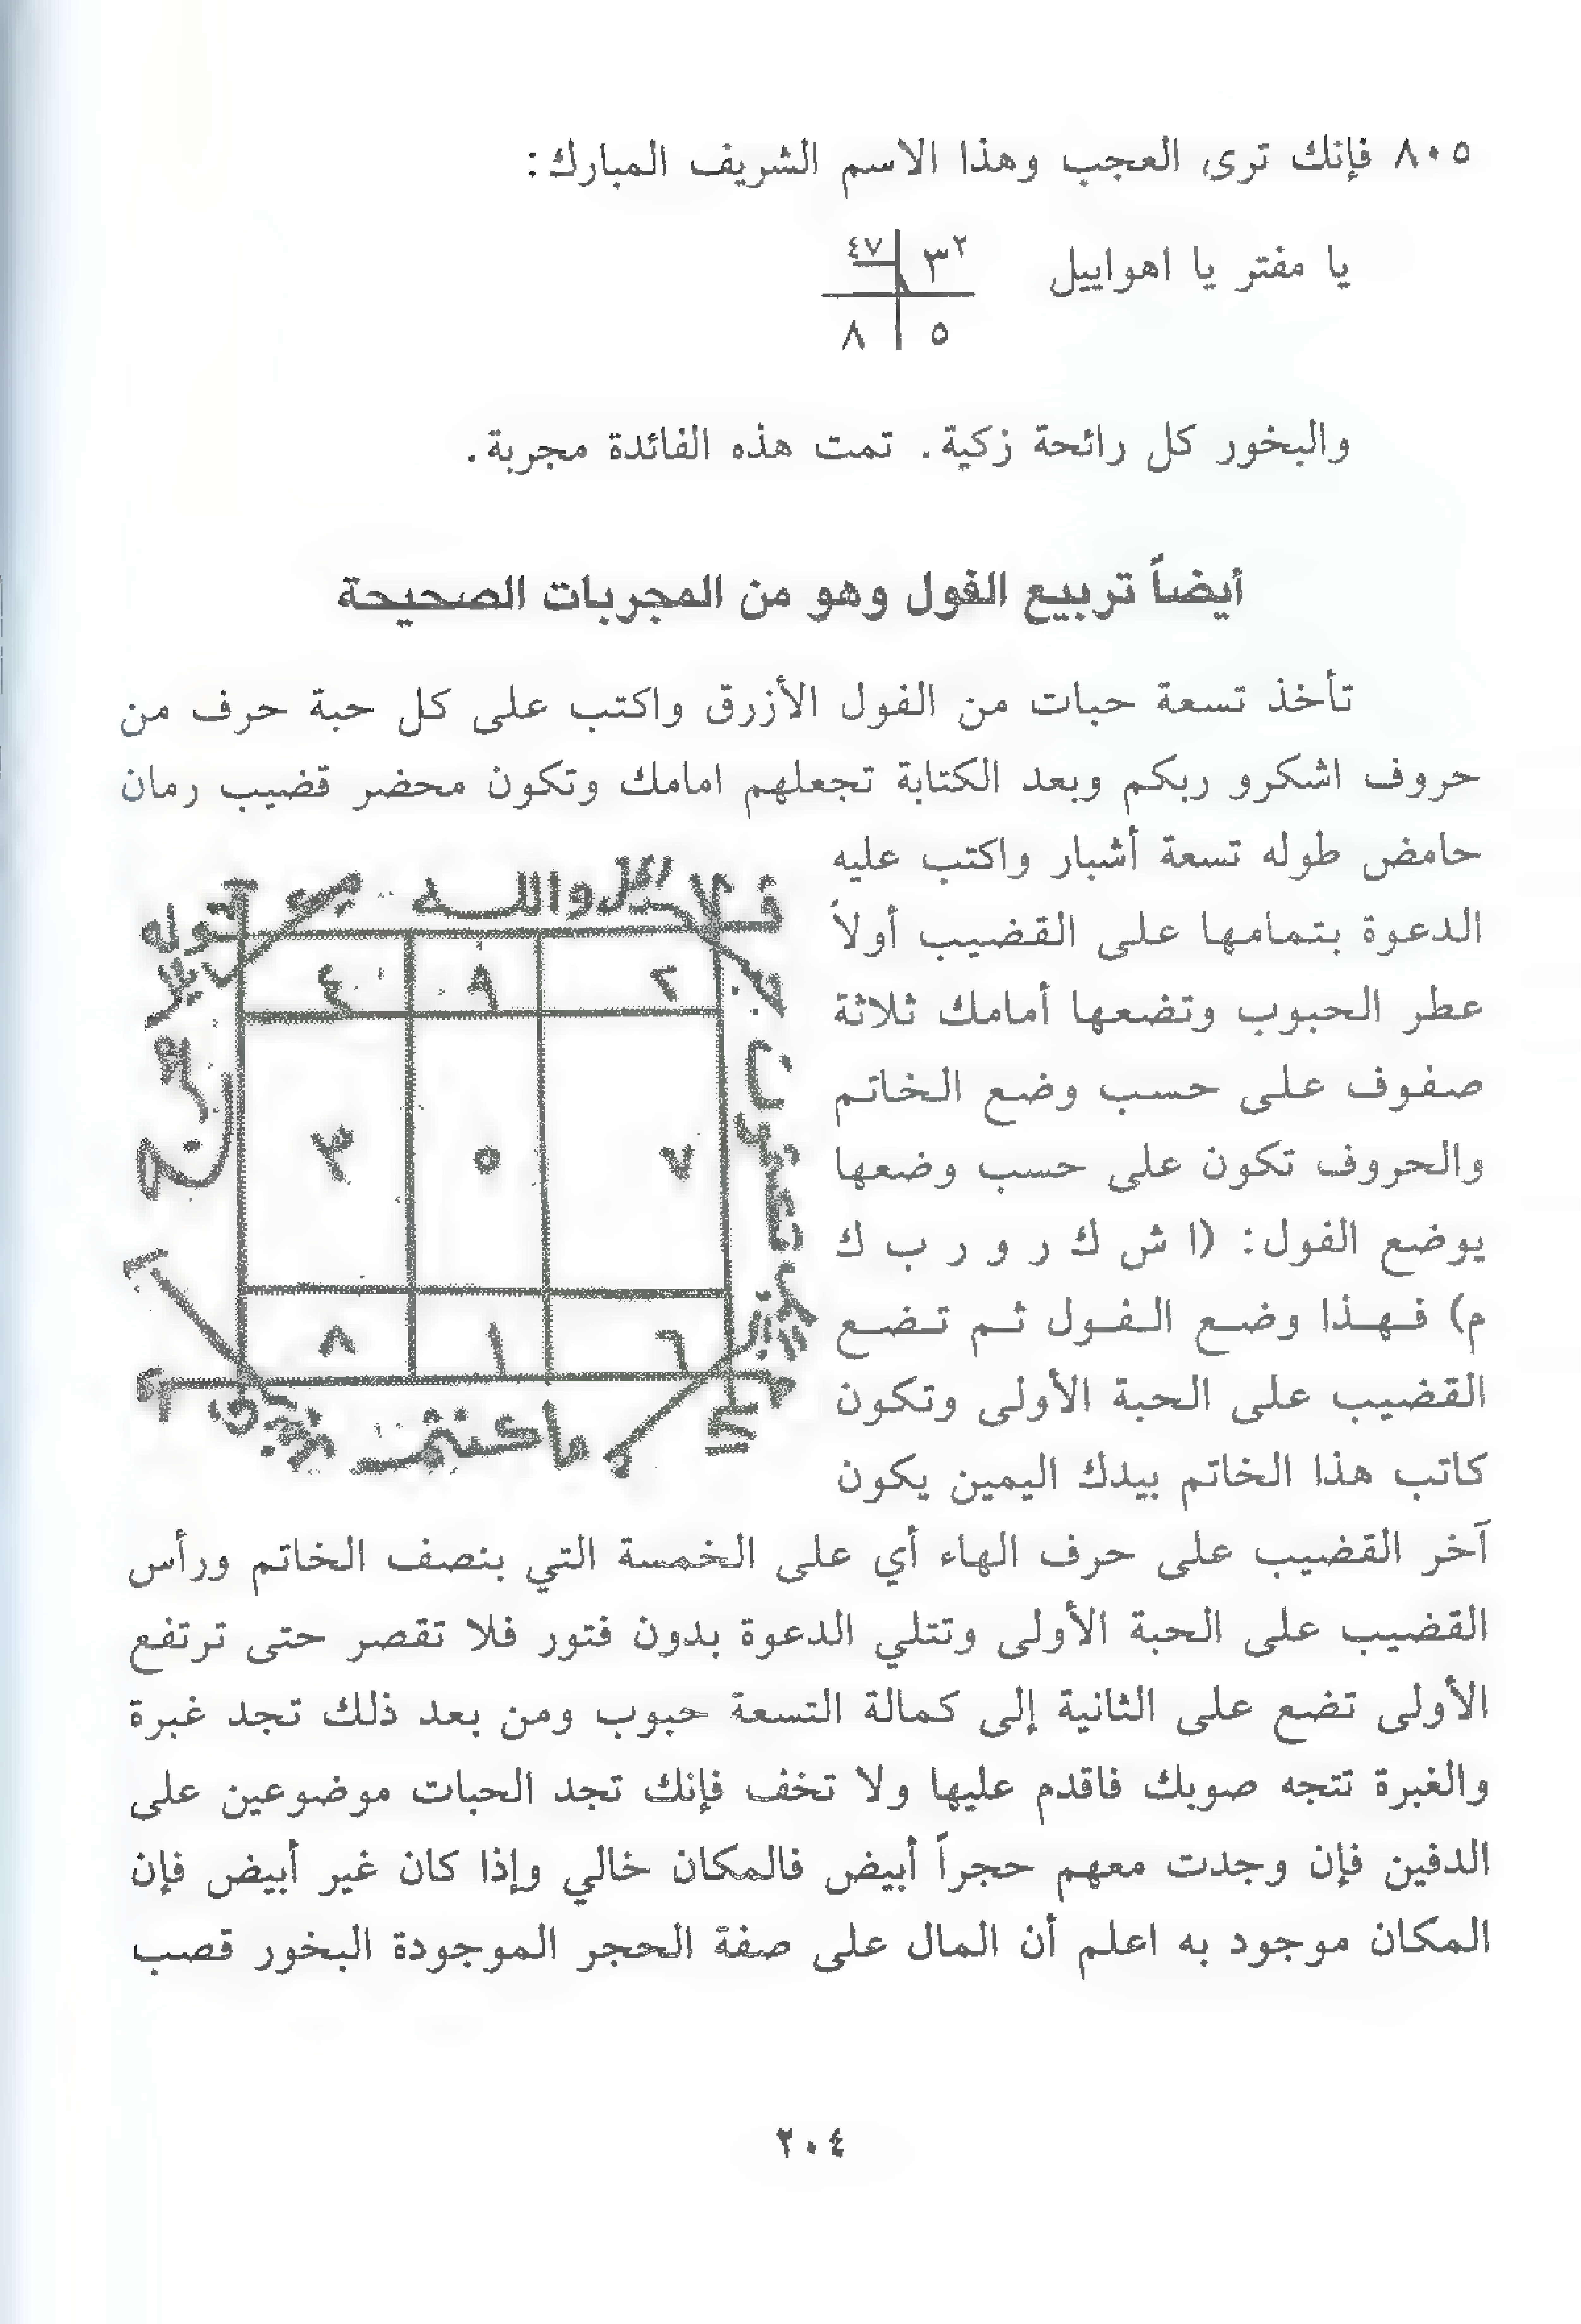 ٨٠٥ فإنك ترى العجب وهذا الاسم الشريف المبارك:
يا مفتر يا اهواييل
٣٢ ٤٧
٥ ٨
والبخور كل رائحة زكية. تمت هذه الفائدة مجربة.
أيضاً تربيع الفول وهو من المجربات الصحيحة
تأخذ تسعة حبات من الفول الأزرق واكتب على كل حبة حرف من
حروف اشكرو ربكم وبعد الكتابة تجعلهم امامك وتكون محضر قضيب رمان
حامض طوله تسعة أشبار واكتب عليه
الدعوة بتمامها على القضيب أولاً
عطر الحبوب وتضعها أمامك ثلاثة
صفوف على حسب وضع الخاتم
والحروف تكون على حسب وضعها
يوضع الفول: (ا ش ك ر و ر ب ك
م) فهذا وضع الفول ثم تضع
القضيب على الحبة الأولى وتكون
كاتب هذا الخاتم بيدك اليمين يكون
والله
قوله
٢ ٩ ٤
٧ ٥ ٣
٦ ١ ٨
ما كنتم
آخر القضيب على حرف الهاء أي على الخمسة التي بنصف الخاتم ورأس
القضيب على الحبة الأولى وتتلي الدعوة بدون فتور فلا تقصر حتى ترتفع
الأولى تضع على الثانية إلى كمالة التسعة حبوب ومن بعد ذلك تجد غبرة
والغبرة تتجه صوبك فاقدم عليها ولا تخف فإنك تجد الحبات موضوعين على
الدفين فإن وجدت معهم حجراً أبيض فالمكان خالي وإذا كان غير أبيض فإن
المكان موجود به اعلم أن المال على صفة الحجر الموجودة البخور قصب
٢٠٤